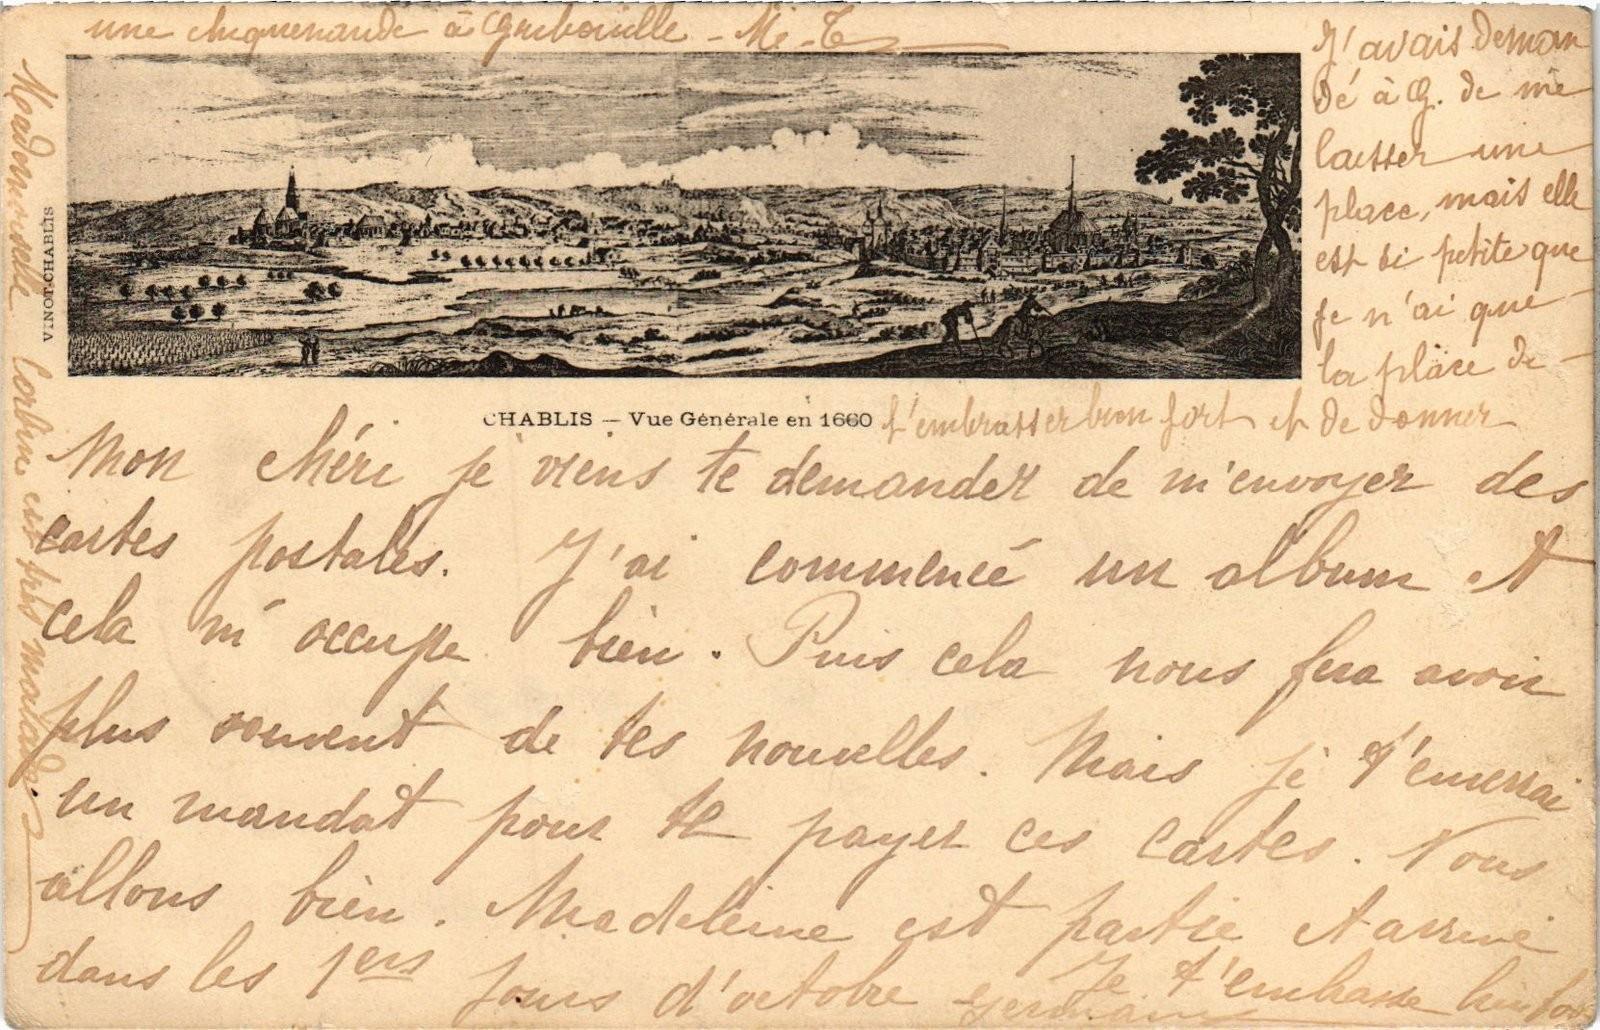 une chiquenaude à Gribouille - M. T.
J'avais deman
dé à G. de me
laisser une
place, mais elle
est si petite que
je n'ai que
la place de
t'embrasser bien fort et de donner
VINOT-CHABLIS
CHABLIS — Vue Générale en 1660
Mademoiselle Corbin est très malade.
Mon chéri je viens te demander de m'envoyer des
cartes postales. J'ai commencé un album et
cela m'occupe bien. Puis cela nous fera avoir
plus souvent de tes nouvelles. Mais je t'enverrai
un mandat pour te payer ces cartes. Nous
allons bien. Madeleine est partie et arrive
dans les 1ers jours d'octobre Je t'embrasse bien for
Germaine